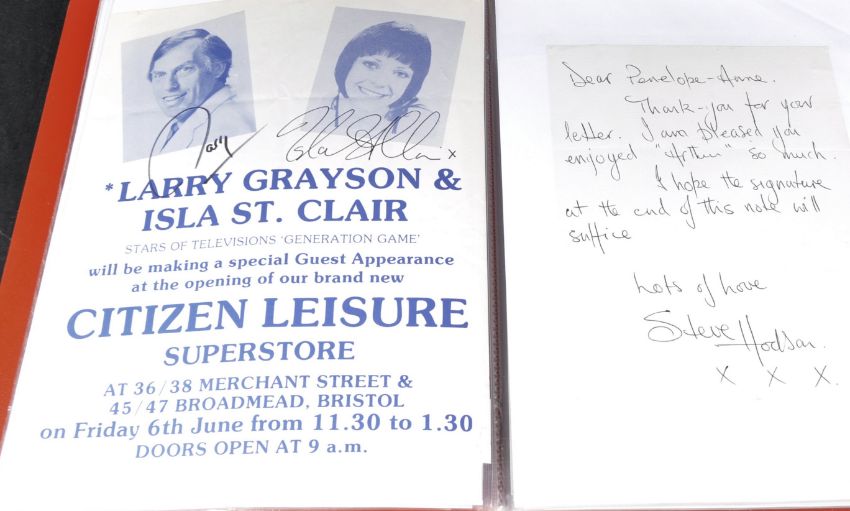 Larry
Isla St Clair x
*LARRY GRAYSON &
ISLA ST. CLAIR
STARS OF TELEVISIONS 'GENERATION GAME'
will be making a special Guest Appearance
at the opening of our brand new
CITIZEN LEISURE
SUPERSTORE
AT 36/38 MERCHANT STREET &
45/47 BROADMEAD, BRISTOL
on Friday 6th June from 11.30 to 1.30
DOORS OPEN AT 9 a.m.
Dear Penelope-Anne.
Thank-you for your
letter. I am pleased you
enjoyed "Arthur" so much.
I hope the signature
at the end of this note will
suffice
Lots of Love
Steve Hodson.
x x x.